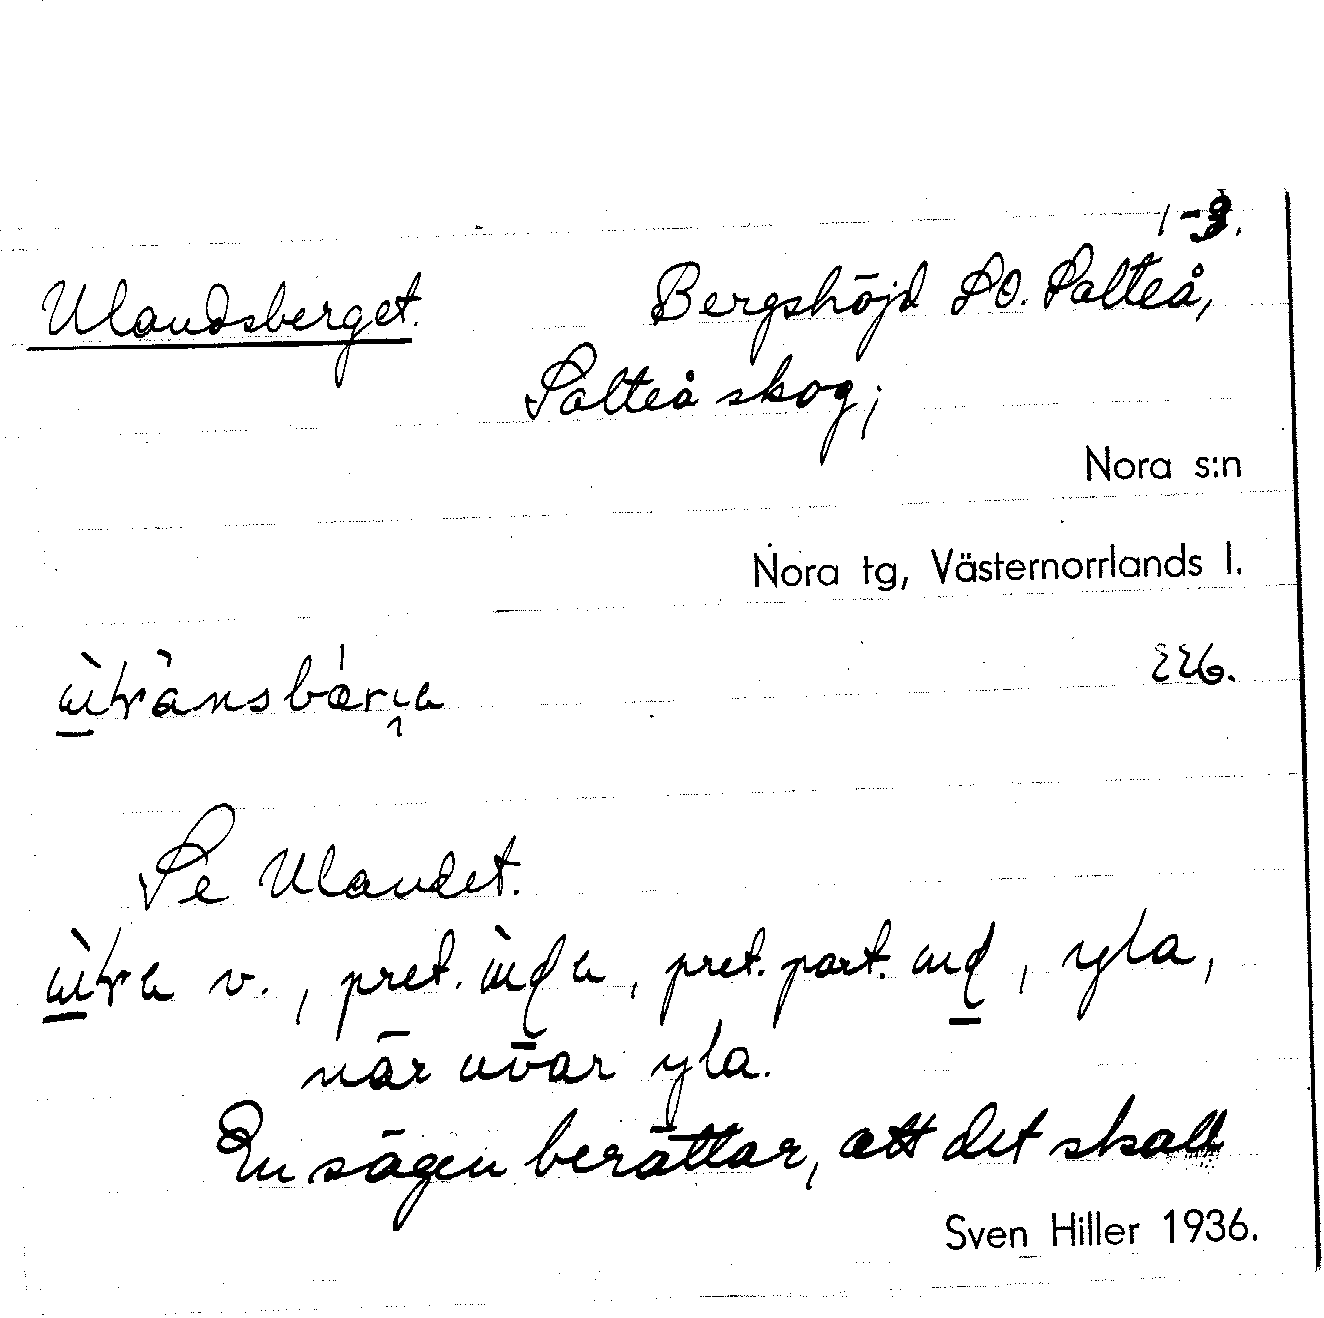 1-3.
Ulandsberget. Bergshöjd SO. Salteå,
Salteå skog;
Nora s:n
Nora tg, Västernorrlands l.
Se Ulandet.
v., pret. , pret. part. , yla,
när uvar yla.
En sägen berättar, att det skall
Sven Hiller 1936.